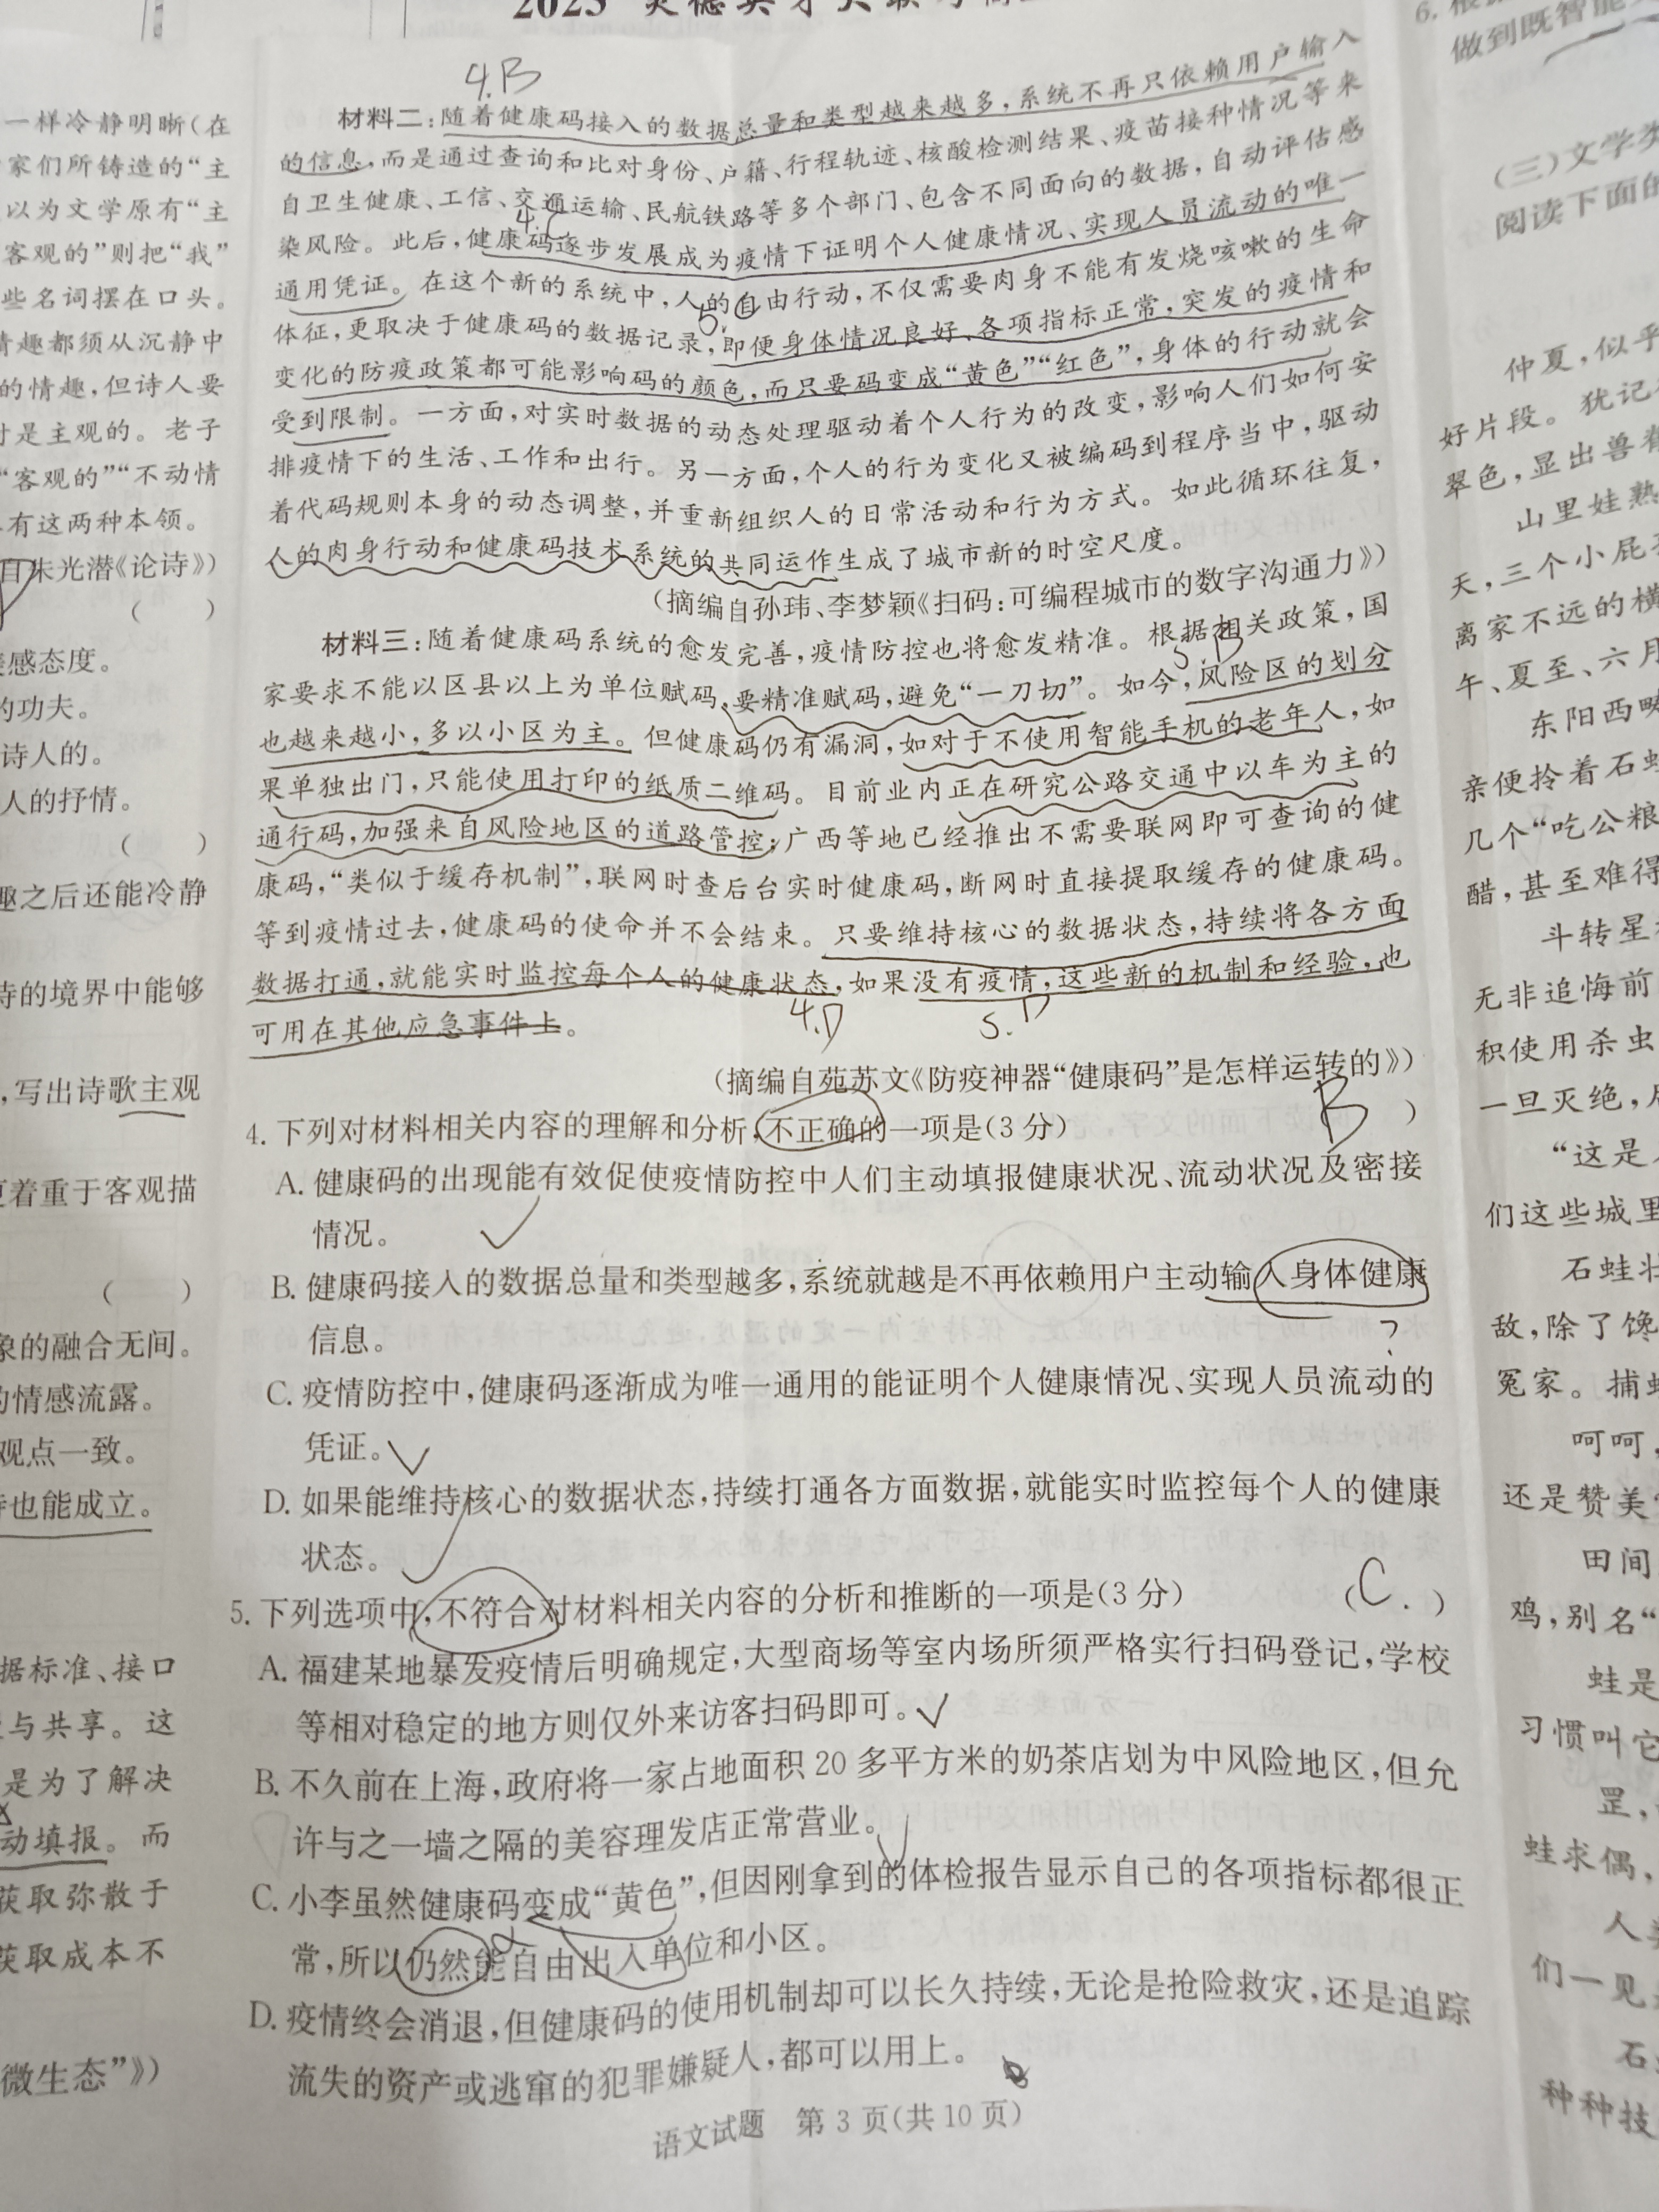 4.B
材料二:随着健康码接入的数据总量和类型越来越多,系统不再只依赖用户输入
的信息,而是通过查询和比对身份、户籍、行程轨迹、核酸检测结果、疫苗接种情况等来
自卫生健康、工信、交通运输、民航铁路等多个部门、包含不同面向的数据,自动评估感
染风险。此后,健康码逐步发展成为疫情下证明个人健康情况、实现人员流动的唯一
通用凭证。在这个新的系统中,人的自由行动,不仅需要肉身不能有发烧咳嗽的生命
体征,更取决于健康码的数据记录,即便身体情况良好、各项指标正常,突发的疫情和
变化的防疫政策都可能影响码的颜色,而只要码变成“黄色”“红色”,身体的行动就会
受到限制。一方面,对实时数据的动态处理驱动着个人行为的改变,影响人们如何安
排疫情下的生活、工作和出行。另一方面,个人的行为变化又被编码到程序当中,驱动
着代码规则本身的动态调整,并重新组织人的日常活动和行为方式。如此循环往复,
人的肉身行动和健康码技术系统的共同运作生成了城市新的时空尺度。
(摘编自孙玮、李梦颖《扫码:可编程城市的数字沟通力》)
材料三:随着健康码系统的愈发完善,疫情防控也将愈发精准。根据相关政策,国
家要求不能以区县以上为单位赋码,要精准赋码,避免“一刀切”。如今,风险区的划分
也越来越小,多以小区为主。但健康码仍有漏洞,如对于不使用智能手机的老年人,如
果单独出门,只能使用打印的纸质二维码。目前业内正在研究公路交通中以车为主的
通行码,加强来自风险地区的道路管控;广西等地已经推出不需要联网即可查询的健
康码,“类似于缓存机制”,联网时查后台实时健康码,断网时直接提取缓存的健康码。
等到疫情过去,健康码的使命并不会结束。只要维持核心的数据状态,持续将各方面
数据打通,就能实时监控每个人的健康状态,如果没有疫情,这些新的机制和经验,也
可用在其他应急事件上。
4.D
5.D
(摘编自苑苏文《防疫神器“健康码”是怎样运转的》)
4. 下列对材料相关内容的理解和分析,不正确的一项是(3分) B )
A. 健康码的出现能有效促使疫情防控中人们主动填报健康状况、流动状况及密接
情况。
B. 健康码接入的数据总量和类型越多,系统就越是不再依赖用户主动输入身体健康
信息。
C. 疫情防控中,健康码逐渐成为唯一通用的能证明个人健康情况、实现人员流动的
凭证。
D. 如果能维持核心的数据状态,持续打通各方面数据,就能实时监控每个人的健康
状态。
5. 下列选项中,不符合对材料相关内容的分析和推断的一项是(3分) (C. )
A. 福建某地暴发疫情后明确规定,大型商场等室内场所须严格实行扫码登记,学校
等相对稳定的地方则仅外来访客扫码即可。
B. 不久前在上海,政府将一家占地面积20多平方米的奶茶店划为中风险地区,但允
许与之一墙之隔的美容理发店正常营业。
C. 小李虽然健康码变成“黄色”,但因刚拿到的体检报告显示自己的各项指标都很正
常,所以仍然能自由出入单位和小区。
D. 疫情终会消退,但健康码的使用机制却可以长久持续,无论是抢险救灾,还是追踪
流失的资产或逃窜的犯罪嫌疑人,都可以用上。
语文试题 第3页(共10页)
一样冷静明晰(在
家们所铸造的“主
以为文学原有“主
客观的”则把“我”
些名词摆在口头。
情趣都须从沉静中
的情趣,但诗人要
是主观的。老子
“客观的”“不动情
有这两种本领。
自朱光潜《论诗》)
( )
感态度。
的功夫。
诗人的。
人的抒情。
( )
趣之后还能冷静
诗的境界中能够
,写出诗歌主观
更着重于客观描
( )
象的融合无间。
的情感流露。
观点一致。
也能成立。
据标准、接口
与共享。这
是为了解决
动填报。而
获取弥散于
获取成本不
微生态”》)
做到既智能
(三)文学类
阅读下面的
仲夏,似乎
好片段。犹记
翠色,显出兽
山里娃熟
天,三个小屁
离家不远的横
午、夏至、六月
东阳西畴
亲便拎着石
几个“吃公粮
醋,甚至难得
斗转星
无非追悔前
积使用杀虫
一旦灭绝,
“这是
们这些城里
石蛙壮
敌,除了馋
冤家。捕
呵呵,
还是赞美
田间
鸡,别名“
蛙是
习惯叫它
罡,
蛙求偶,
人
们一见
石
种种技